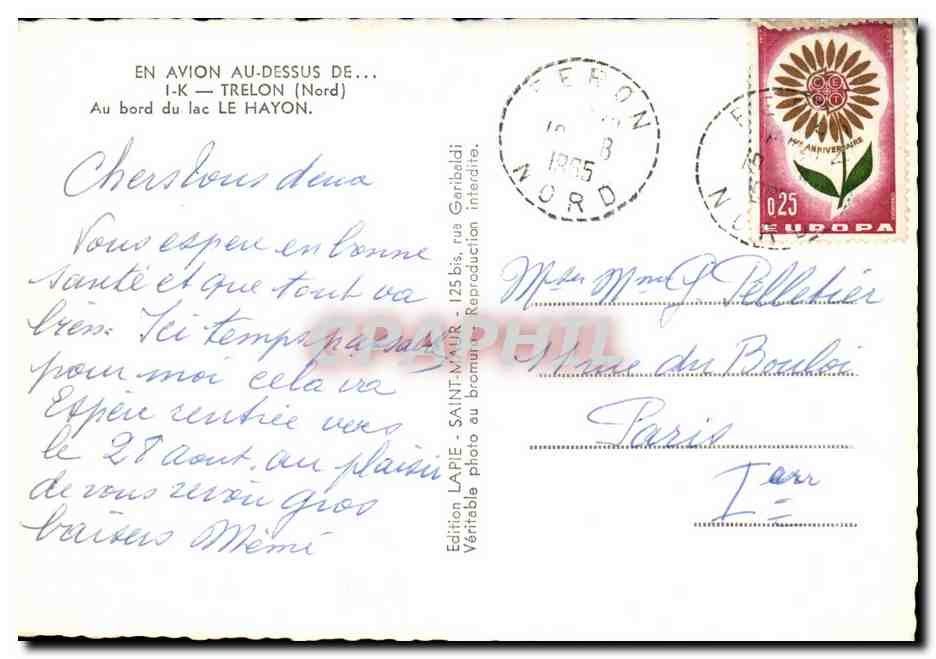 EN AVION AU-DESSUS DE...
I-K — TRELON (Nord)
Au bord du lac LE HAYON.
Chers tous deux
Vous espère en bonne
santé et que tout va
bien. Ici temps passable
pour moi cela va
Espère rentrée vers
le 28 aout. au plaisir
de vous revoir gros
baisers Mémé
Edition LAPIE - SAINT-MAUR - 125 bis, rue Garibaldi
Véritable photo au bromure - Reproduction interdite.
FERON
8
1965
NORD
CEPT
Vme ANNIVERSAIRE
0,25
EUROPA
NORD
Mr et Mme G Pelletier
rue du Bouloi
Paris
Ier arr
CPAPHIL